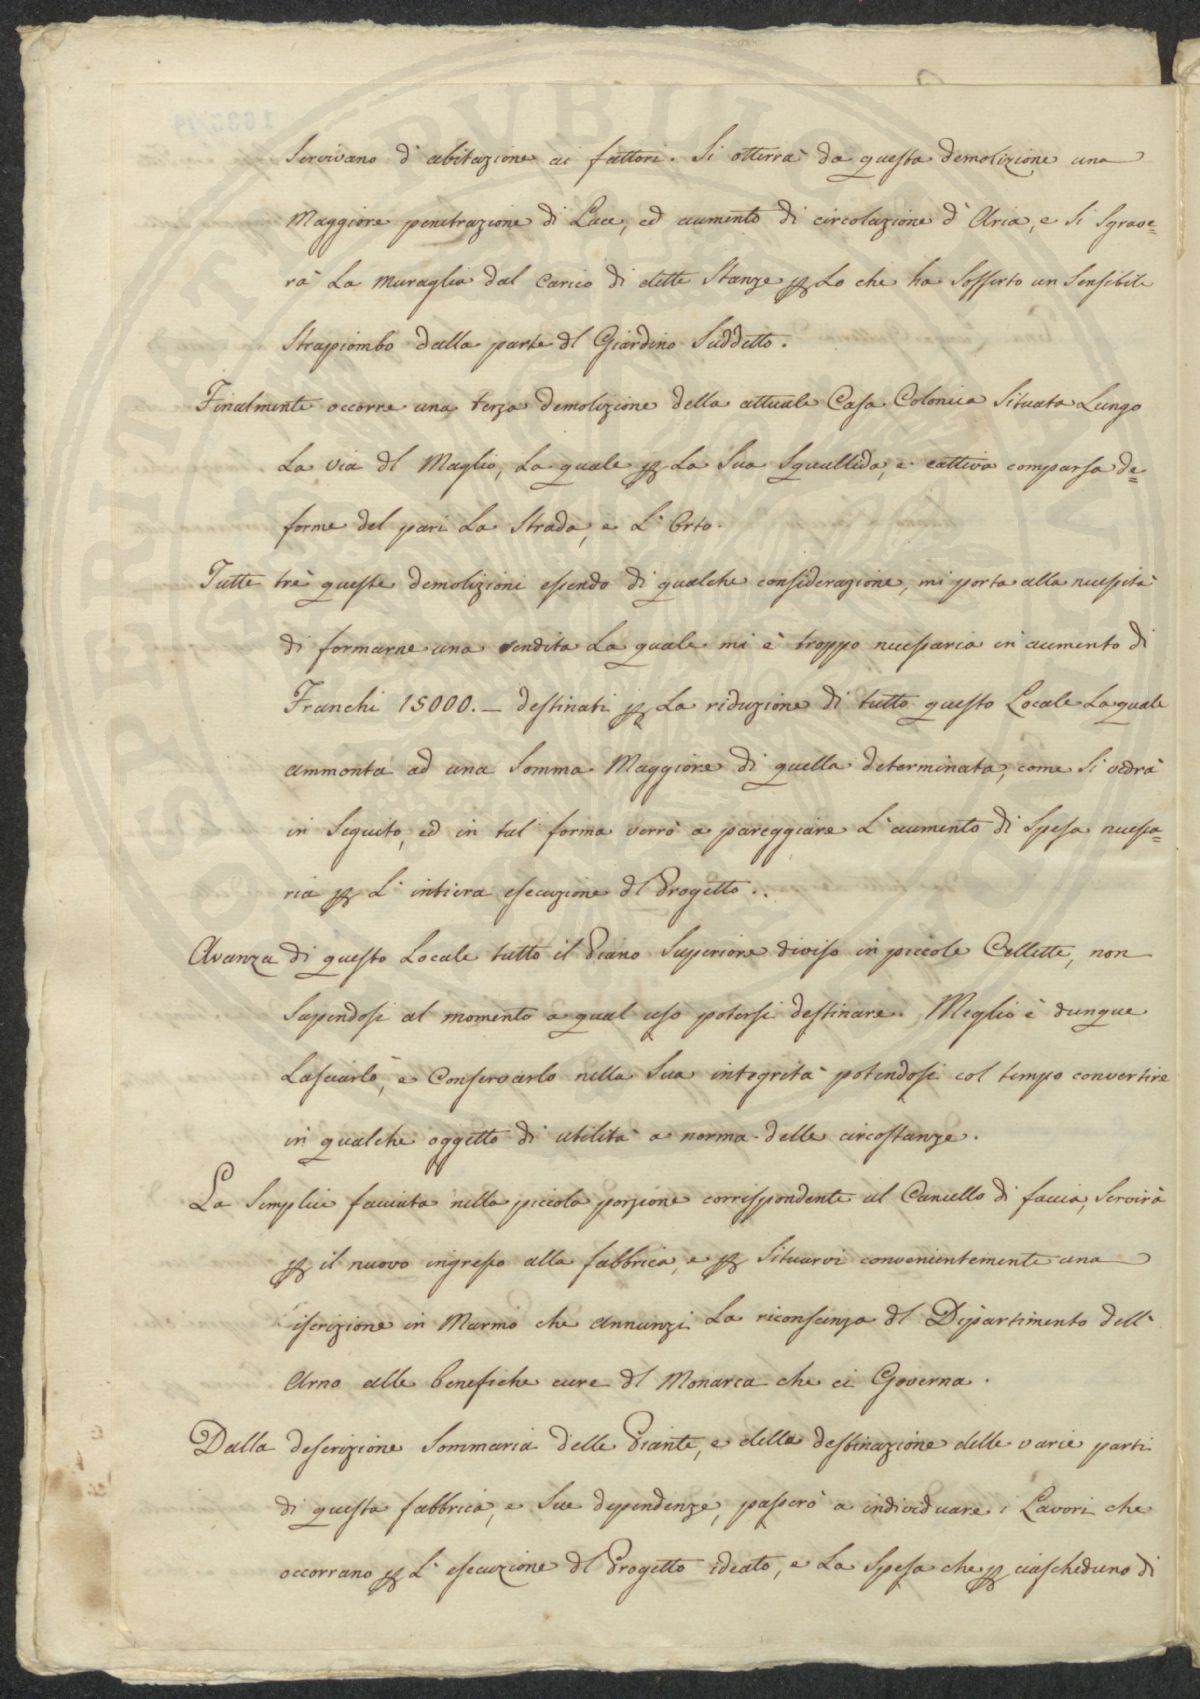 Servivano d'abitazione ai fattori. Si otterrà da questa demolizione una
Maggiore penetrazione di Luce, ed aumento di circolazione d'Aria, e si sgrave=
rà La muraglia dal carico di dette Stanze p Lo che ha sofferto un sensibile
Strapiombo dalla parte dl Giardino Suddetto.
Finalmente occorre una terza demolizione della attuale Casa Colonica Situata Lungo
La via dl Maglio, La quale p La Sua Squallida, e cattiva comparsa de=
forme del pari La Strada, e L'Orto.
Tutte trè queste demolizioni essendo di qualche considerazione, mi porta alla necessità
di formarne una vendita La quale mi è troppo necessaria in aumento di
Franchi 15000.— destinati p La riduzione di tutto questo Locale La quale
ammonta ad una Somma Maggiore di quella determinata, come Si vedrà
in Seguito, ed in tal forma verrò a pareggiare L'aumento di Spesa necessa=
ria p L'intiera esecuzione dl Progetto..
Avanza di questo Locale tutto il Piano Superiore diviso in piccole Cellette, non
Sapendosi al momento a qual uso potersi destinare. Meglio è dunque
Lasciarlo, e Conservarlo nella Sua integrità potendosi col tempo convertire
in qualche oggetto di utilità a norma delle circostanze.
La Semplice facciata nella piccola porzione corrispondente al Cancello di faccia, Servirà
p il nuovo ingresso alla fabbrica, e p Situarvi convenientemente una
iscrizione in Marmo che Annunzi La riconscenza dl Dipartimento dell'
Arno alle benefiche cure dl Monarca che ci Governa.
Dalla descrizione Sommaria delle Piante, e della destinazione delle varie parti
di questa fabbrica, e Sue dependenze, passerò a individuare i Lavori che
occorrano p L'esecuzione dl Progetto ideato, e La Spesa che p ciascheduno di